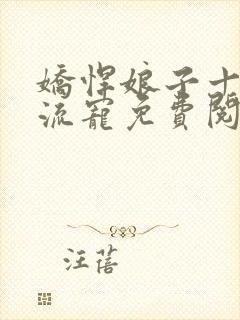 嬌悍娘子十
流寵免費閱
汪蓓